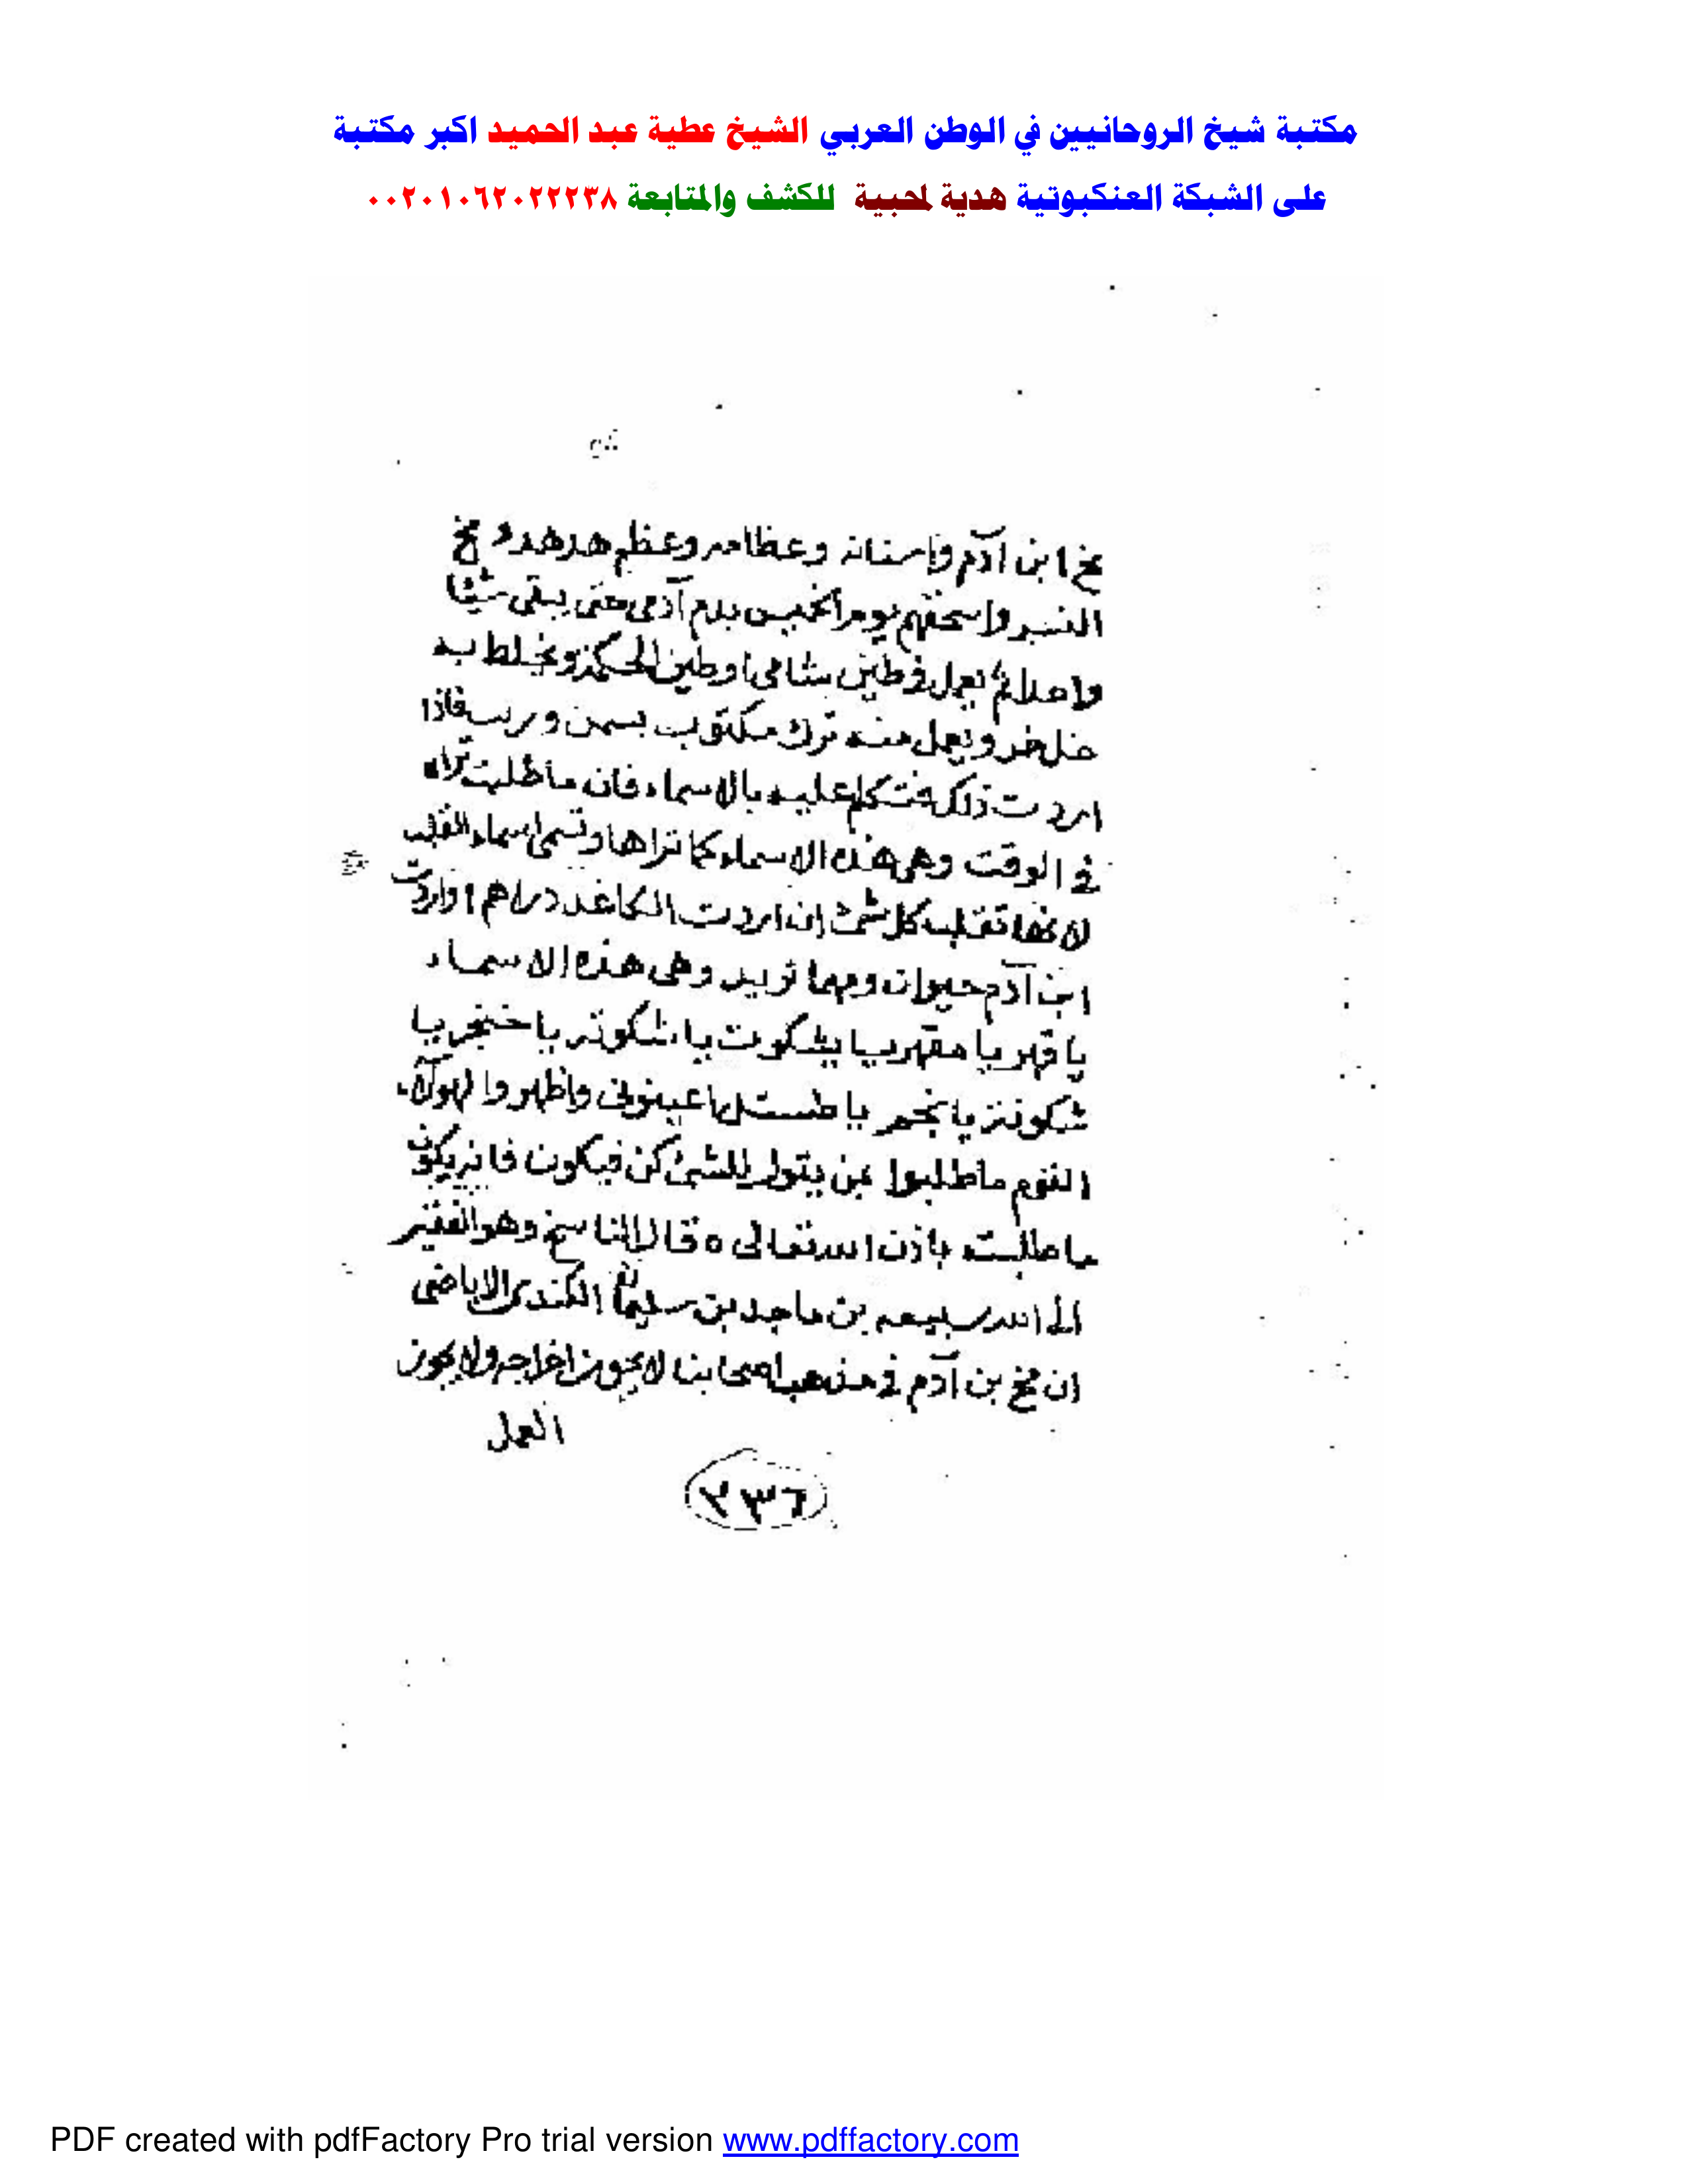 مكتبة شيخ الروحانيين في الوطن العربي الشيخ عطية عبد الحميد اكبر مكتبة
على الشبكة العنكبوتية هدية لمحبية للكشف والمتابعة ٠٠٢٠١٠٦٢٠٢٢٢٣٨
مخ ابن آدم واسنانه وعظامه وعظم هدهد ومخ
النسر واسحقهم يوم الخميس بدم آدمى حتى يبقى شيئا
واحدا ثم يعمل في طين شامى اوطين الحكمة ويخلط به
خل خمر ويعمل منه مكتوب
اردت ذلك عليه بالاسماء فانه ما طلبت تراه
في الوقت وهى هذه الاسماء كما تراها وتسمى اسماء القلب
لانها تقلب كل شئ ان اردت الكاغد دراهم اواردت
ابن آدم حيوان ومهما تريد وهى هذه الاسماء
يا قهر يا مقهر يا يشكوت يا شكوته يا خنجر يا
يا طست اعينونى واظهروا لهولاء
القوم ما طلبوا بمن يقول للشئ كن فيكون فانه يكون
ما طلبت باذن الله تعالى ه قال الناسخ وهو الفقير
الى الله بن ماجد بن سليمان الكندى الاباضى
ان مخ بن آدم في مذهب اصحابنا لا يجوز اخراجه ولا يجوز
العمل
٢٣٦
PDF created with pdfFactory Pro trial version www.pdffactory.com